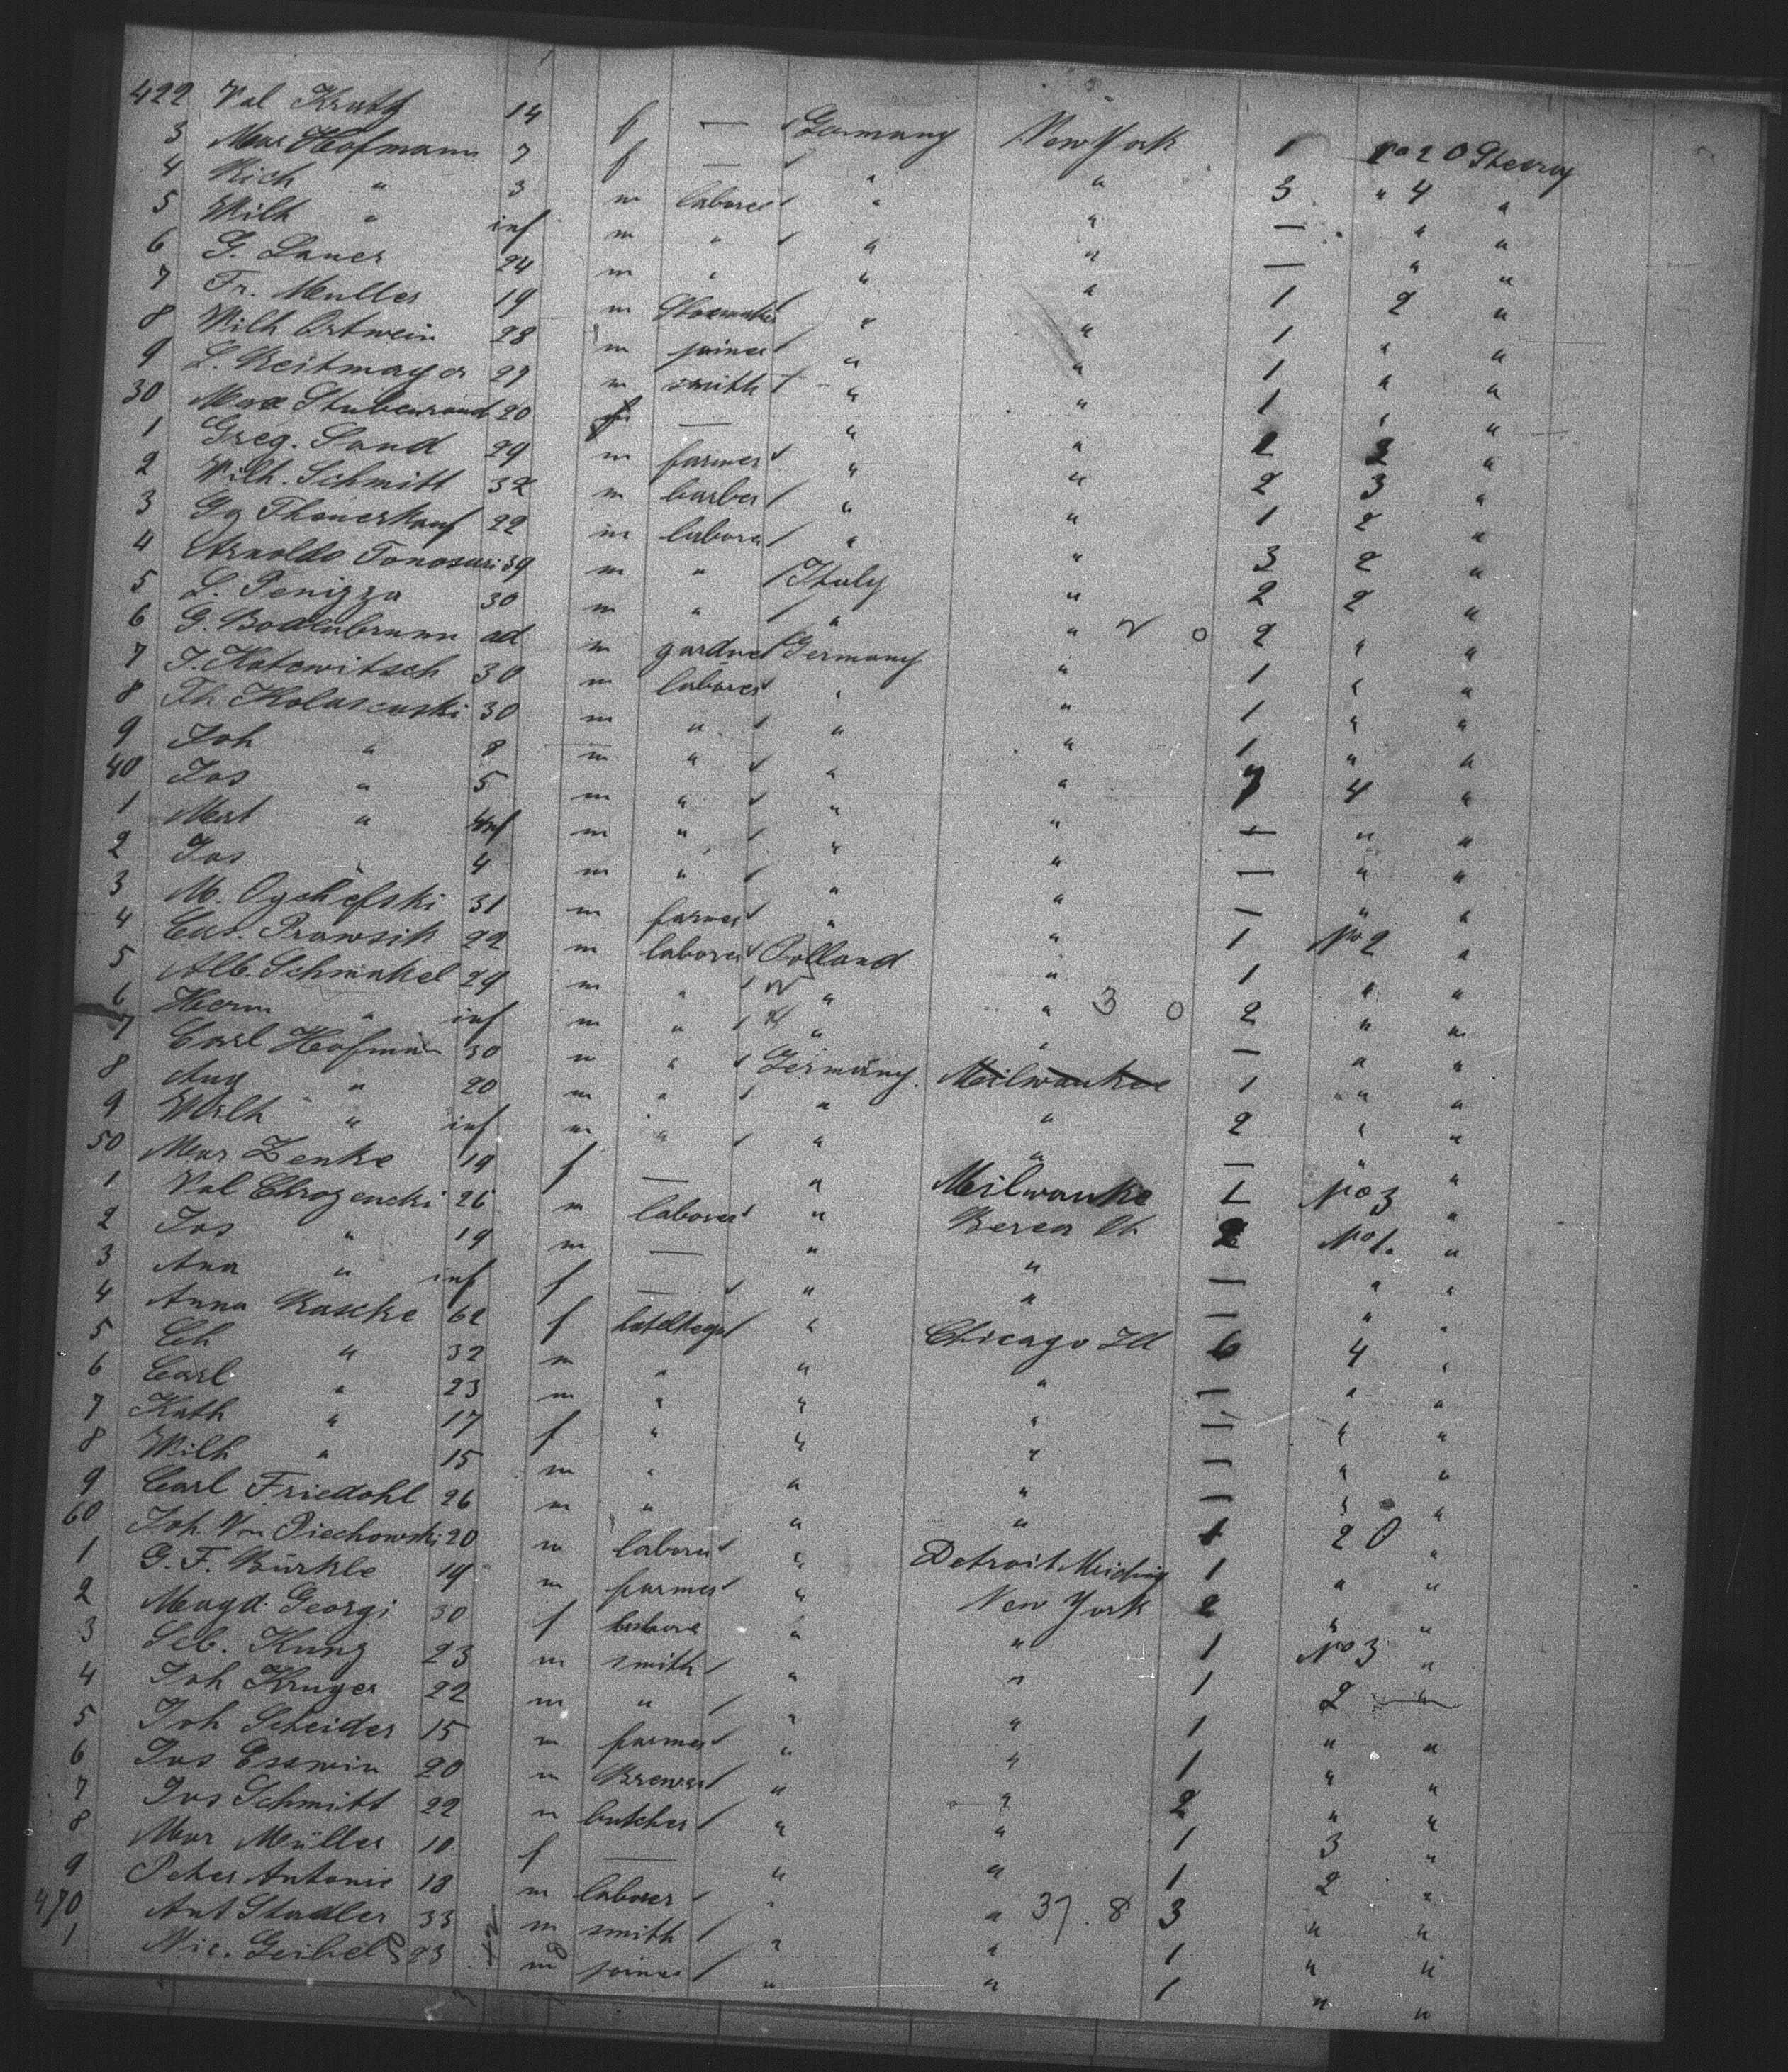 422 Val Kratz 14 f — Germany New York 1 No 2 O Steerag
3 Mar Hofmann 7 f — " " 3 " 4 "
4 Rich " 3 m laborer " " — " "
5 Wilh " inf m " " " — " "
6 G. Lauer 24 m " " " 1 2 "
7 Fr. Muller 19 m " " 1 " "
8 Wilh Ortwein 28 m joiner " " 1 " "
9 L. Reitmayer 27 m smith " " 1 " "
30 Max 20 — " " 2 2 "
1 Greg. Sand 29 m farmer " " 2 3 "
2 Wilh. Schmitt 32 m barber " " 1 2 "
3 Gg Theuerkauf 22 m labora " " 3 2 "
4 Arnoldo 39 m " Italy " 2 2 "
5 L. Penizza 30 m " " " 2 " "
6 G. Bodenbrunn ad m gardner Germany " 1 " "
7 J. Katewitsch 30 m laborer " " 1 " "
8 Th Kolascuski 30 m " " " 1 " "
9 Joh " 8 m " " " 4 "
40 Jos " 5 m " " " — " "
1 Mat " inf m " " " — " "
2 Jos " 4 m " " " — " "
3 M. Oyschefski 31 m farmer " " 1 No 2 "
4 Prawsik 22 m laborer Polland " 1 " "
5 Alb. Schmakel 29 m " " " 3 0 2 " "
6 Herm " inf m " " " — " "
7 Carl Hofman 30 m " Germany. Milwaukee 1 " "
8 Aug " 20 m " " " 2 " "
9 Wilh " inf m " " " — " "
50 Mar Zenke 19 f — " Milwauke 1 No 3 "
1 Val Chrozencki 26 m laborer " Berea Oh 2 No 1. "
2 Jos " 19 m — " " — " "
3 Ana " inf f — " " — " "
4 Anna Raschke 62 f " Chicago Ill 6 4 "
5 " 32 m " " " — " "
6 Carl " 23 m " " " — " "
7 Kath " 17 f " " " — " "
8 Wilh " 15 m " " " — " "
9 Carl Friedohl 26 m " " " 1 2 0 "
60 Joh. Piechowski 20 m laborer " Detroit 1 " "
1 G. F. Bürkle 19 m farmer " New York 2 " "
2 Magd. Georgi 30 f " " 1 No 3 "
3 Seb. Kunz 23 m smith " " 1 2 "
4 Joh Kruger 22 m " " " 1 " "
5 Joh Scheider 15 m farmer " " 1 " "
6 Jos Esswin 20 m Brewer " " 2 " "
7 Jos Schmitt 22 m butcher " " 1 3 "
8 Mar Müller 10 f — " " 1 2 "
9 Peter Antonie 18 m laborer " " 37. 8 3 " "
470 Ant Stadler 33 m smith " " 1 " "
1 Nic. Geibel 23 m joiner " " 1 " "